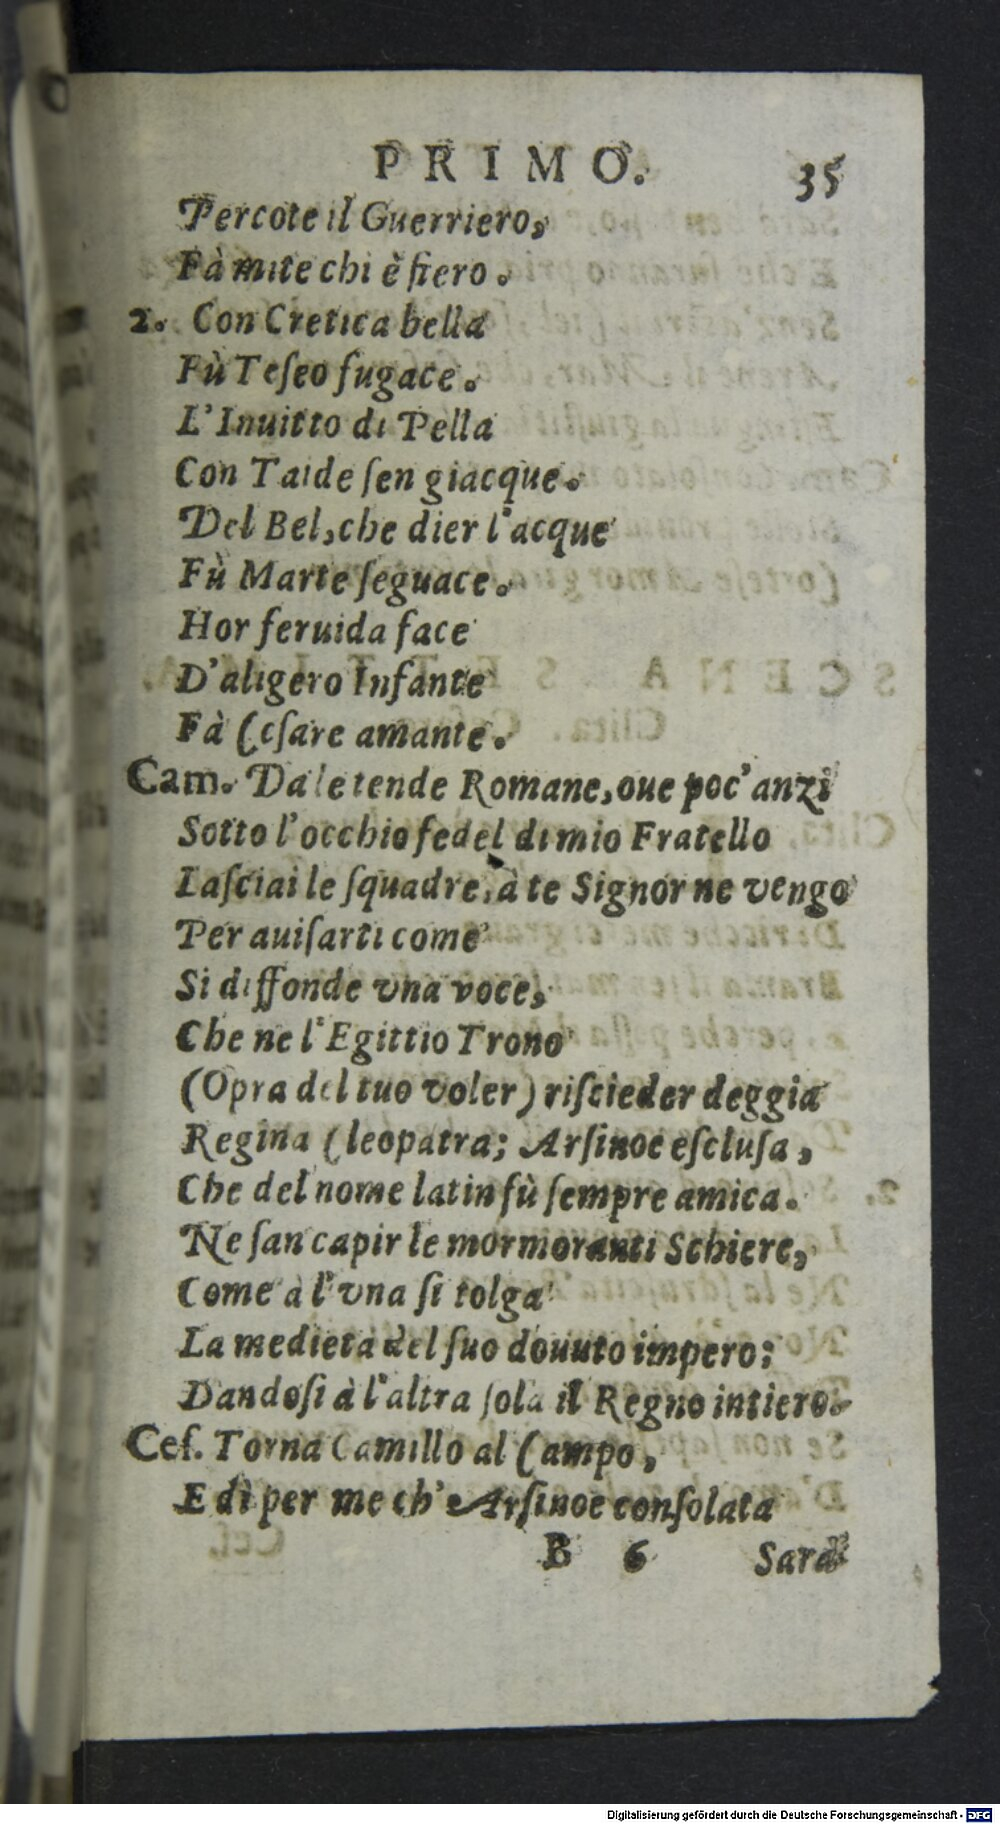 PRIMO. 35
Percote il Guerriero,
Fà mite chi è fiero.
2. Con Cretica bella
Fù Teſeo fugace.
L'Inuitto di Pella
Con Taide ſen giacque.
Del Bel, che dier l'acque
Fù Marte ſeguace.
Hor feruida face
D'aligero Infante
Fà Ceſare amante.
Cam. Da le tende Romane, oue poc'anzi
Sotto l'occhio fedel di mio Fratello
Laſciai le ſquadre, à te Signor ne vengo
Per auiſarti come
Si diffonde vna voce,
Che ne l'Egittio Trono
(Opra del tuo voler) riſcieder deggia
Regina Cleopatra; Arſinoe eſcluſa,
Che del nome latin fù ſempre amica.
Ne ſan capir le mormoranti Schiere,
Come à l'vna ſi tolga
La medieta del ſuo douuto impero;
Dandoſi à l'altra ſola il Regno intiero.
Ceſ. Torna Camillo al Campo,
E dì per me ch'Arſinoe conſolata
B 6 Sarà
Digitalisierung gefördert durch die Deutsche Forschungsgemeinschaft - DFG